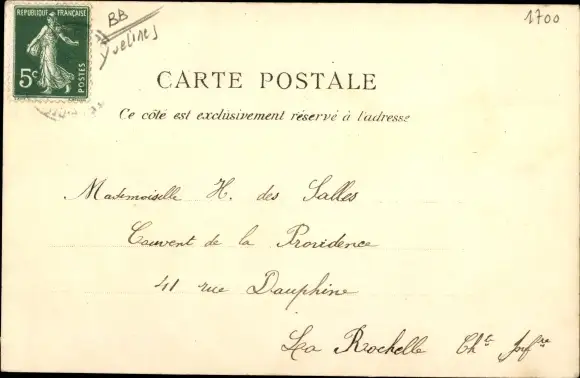 REPUBLIQUE FRANÇAISE
5c
POSTES
BB
Yvelines
1700
CARTE POSTALE
Ce côté est exclusivement réservé à l'adresse
Mademoiselle H. des Salles
Couvent de la Providence
41 rue Dauphine
La Rochelle Chte Infre